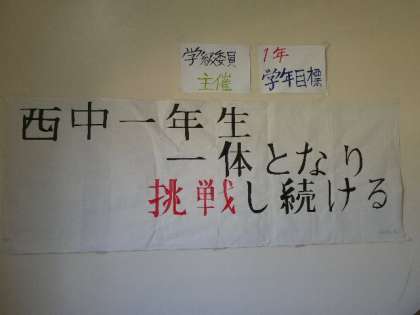 学級委員
主催
1年
学年目標
西中一年生
一体となり
挑戦し続ける